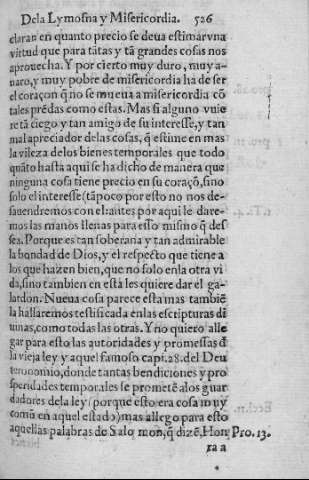 Dela Lymosna y Misericordia. 526
claran en quanto precio se deua estimar vna
virtud que para tātas y tā grandes cosas nos
aprouecha. Y por cierto muy duro, muy a-
uaro, y muy pobre de misericordia ha de ser
el coraçon q̄ no se mueua a misericordia cō
tales prēdas como estas. Mas si alguno vuie
re tā ciego y tan amigo de su interesse, y tan
mal apreciador de las cosas, q̄ estime en mas
la vileza de los bienes temporales que todo
quāto hasta aqui se ha dicho de manera que
ninguna cosa tiene precio en su coraçō, sino
solo el interesse (tāpoco por esto no nos de-
sauendremos con el: antes por aqui le dare-
mos las manos llenas para esso mismo q̄ des
sea. Porque es tan soberana y tan admirable
la bondad de Dios, y el respecto que tiene a
los que hazen bien, que no solo en la otra vi
da, sino tambien en esta les quiere dar el ga-
lardon. Nueua cosa parece esta mas tambiē
la hallaremos testificada en las escripturas di
uinas, como todas las otras. Y no quiero alle
gar para esto las autoridades y promessas d̄
la vieja ley y aquel famoso capi. 28. del Deu
teronomio, donde tantas bendiciones y pro
speridades temporales se prometē a los guar
dadores de la ley (porque esto era cosa muy
comū en aquel estado) mas allego para esto
aquellas palabras de Salomon, q̄ dizē, Hon Pro. 13.
ra a